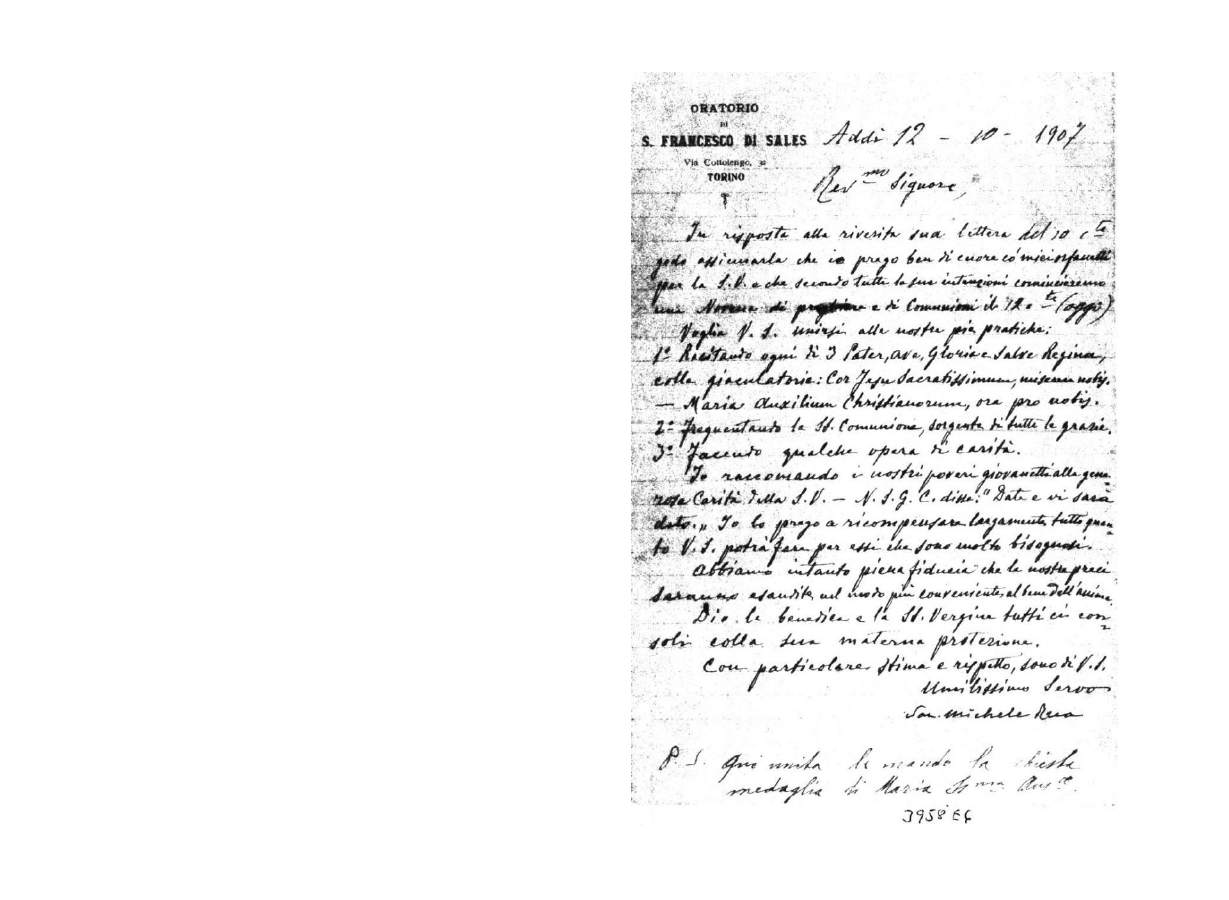 ORATORIO
DI
S. FRANCESCO DI SALES
Via Cottolengo, 32
TORINO
Addì 12 - 10 - 1907
Rev.mo Signore,
In risposta alla riverita sua lettera del 10 c.te
godo assicurarla che io prego ben di cuore có miei orfanelli
per la S.V. e che secondo tutte le sue intenzioni cominceremo
una Novena di preghiere e di Comunioni il 12 c.te (oggi)
Voglia V. S. unirsi alle nostre pie pratiche:
1° Recitando ogni dì 3 Pater, Ave, Gloria e Salve Regina,
colla giaculatoria: Cor Jesu Sacratissimum, miserere nobis.
— Maria Auxilium Christianorum, ora pro nobis.
2° Frequentando la SS. Comunione, sorgente di tutte le grazie.
3° Facendo qualche opera di carità.
Io raccomando i nostri poveri giovanetti alla gene-
rosa Carità della S.V. — N. S. G. C. disse: "Date e vi sarà
dato." Io lo prego a ricompensare largamente tutto quan-
to V. S. potrà fare per essi che sono molto bisognosi.
Abbiamo intanto piena fiducia che le nostre preci
saranno esaudite, nel modo più conveniente, al bene dell'anima.
Dio la benedica e la SS. Vergine tutti ci con-
soli colla sua materna protezione.
Con particolare stima e rispetto, sono di V. S.
Umilissimo Servo
Sac. Michele Rua
P. S. Qui unita le mando la chiesta
medaglia di Maria SS.ma Aus.ce
3958 E4